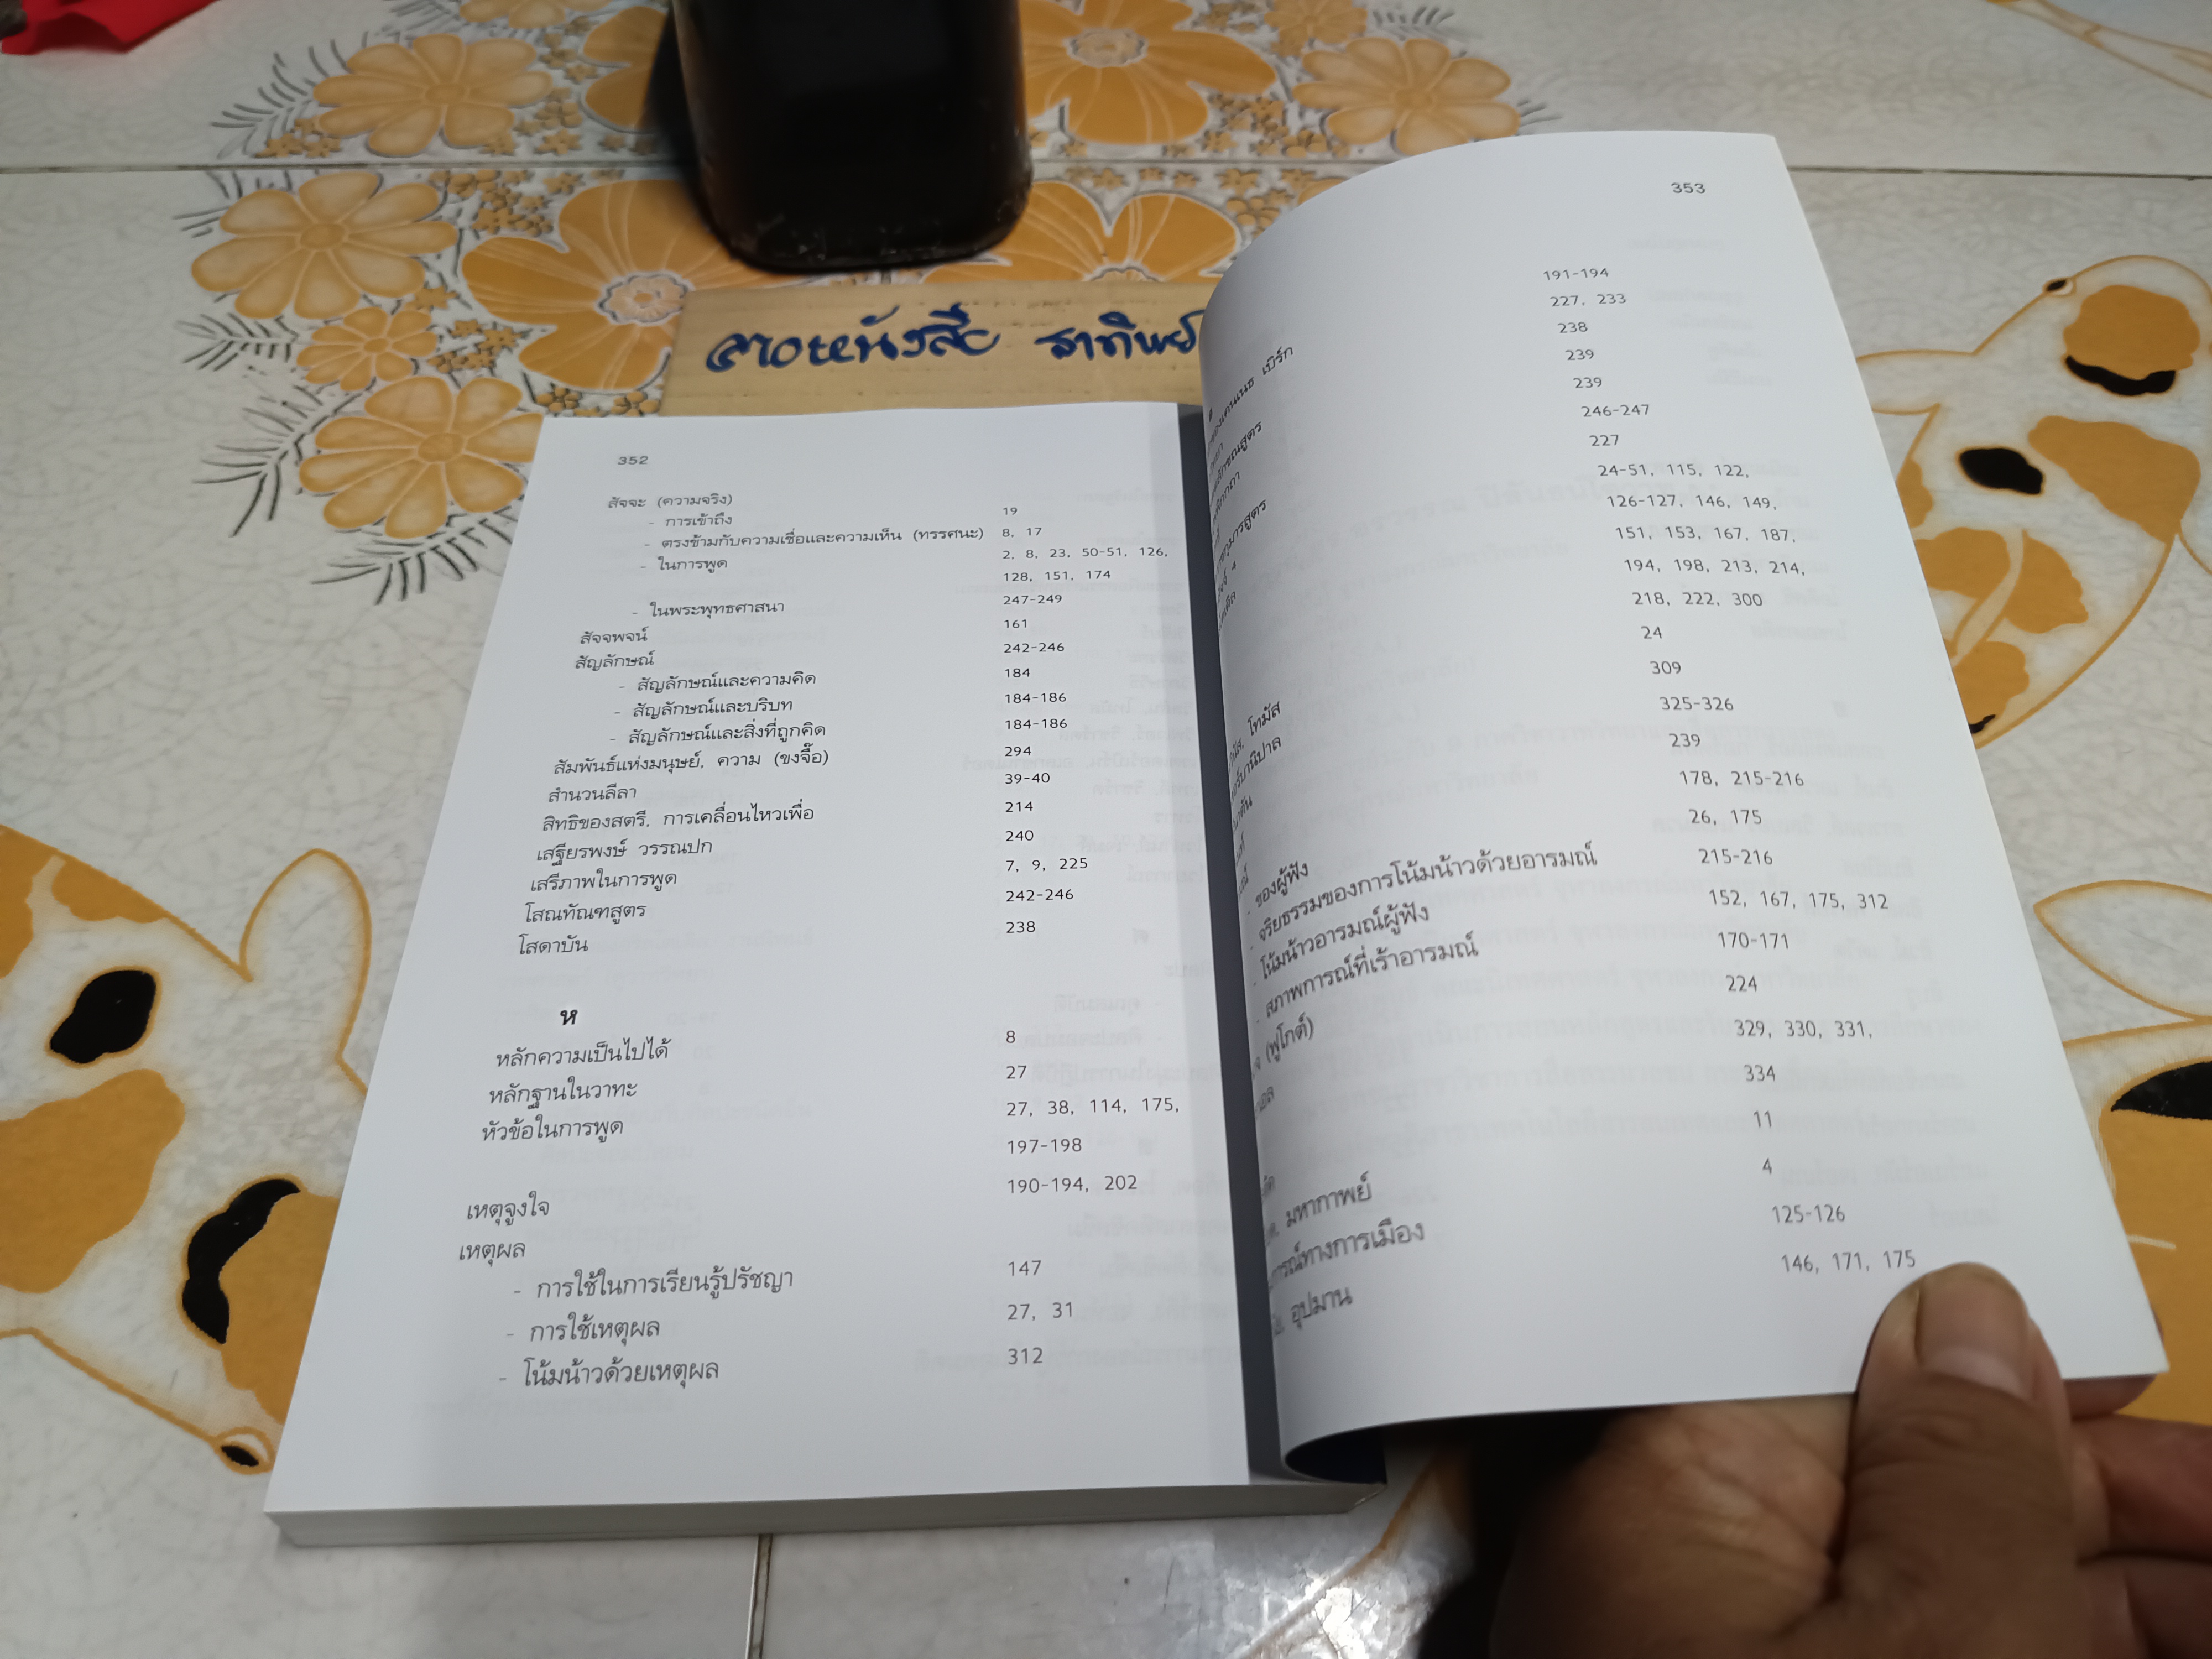 ลายหนังสือ
352
สัจจะ (ความจริง)
- การเข้าถึง 19
- ตรงข้ามกับความเชื่อและความเห็น (ทรรศนะ) 8, 17
- ในการพูด 2, 8, 23, 50-51, 126,
128, 151, 174
- ในพระพุทธศาสนา 247-249
สัจจพจน์ 161
สัญลักษณ์ 242-246
- สัญลักษณ์และความคิด 184
- สัญลักษณ์และบริบท 184-186
- สัญลักษณ์และสิ่งที่ถูกคิด 184-186
สัมพันธ์แห่งมนุษย์, ความ (ขงจื๊อ) 294
สำนวนลีลา 39-40
สิทธิของสตรี, การเคลื่อนไหวเพื่อ 214
เสฐียรพงษ์ วรรณปก 240
เสรีภาพในการพูด 7, 9, 225
โสณทัณฑสูตร 242-246
โสดาบัน 238
ห
หลักความเป็นไปได้ 8
หลักฐานในวาทะ 27
หัวข้อในการพูด 27, 38, 114, 175,
197-198
เหตุจูงใจ 190-194, 202
เหตุผล
- การใช้ในการเรียนรู้ปรัชญา 147
- การใช้เหตุผล 27, 31
- โน้มน้าวด้วยเหตุผล 312
353
เบิร์ก 191-194
227, 233
238
239
239
246-247
227
24-51, 115, 122,
126-127, 146, 149,
151, 153, 167, 187,
194, 198, 213, 214,
218, 222, 300
โทมัส 24
309
325-326
239
178, 215-216
ของผู้ฟัง 26, 175
จริยธรรมของการโน้มน้าวด้วยอารมณ์ 215-216
- โน้มน้าวอารมณ์ผู้ฟัง 152, 167, 175, 312
- สภาพการณ์ที่เร้าอารมณ์ 170-171
(ฟูโกต์) 224
329, 330, 331,
334
11
มหากาพย์ 4
125-126
อุปมาน 146, 171, 175